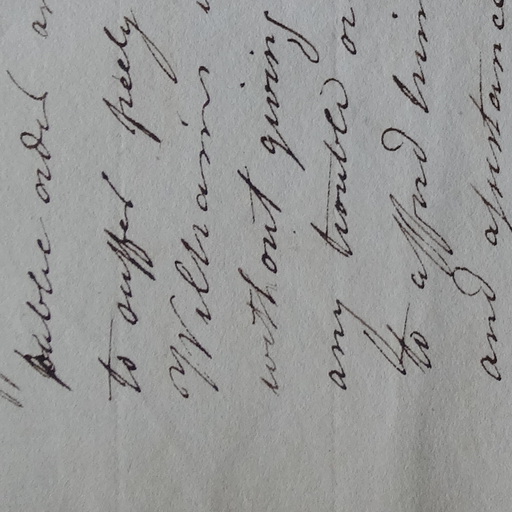 " public order an
to suffer freely
Williams
without giving
any trouble or
to afford him
and assistance